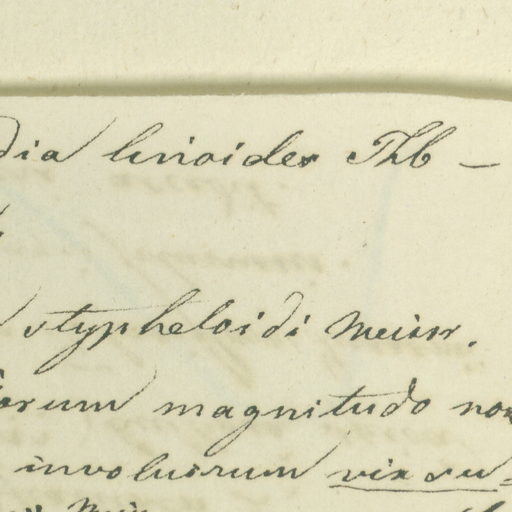 dia linoides Thb –
stypheloidi Meissn.
orum magnitudo non
involucrorum vix su-